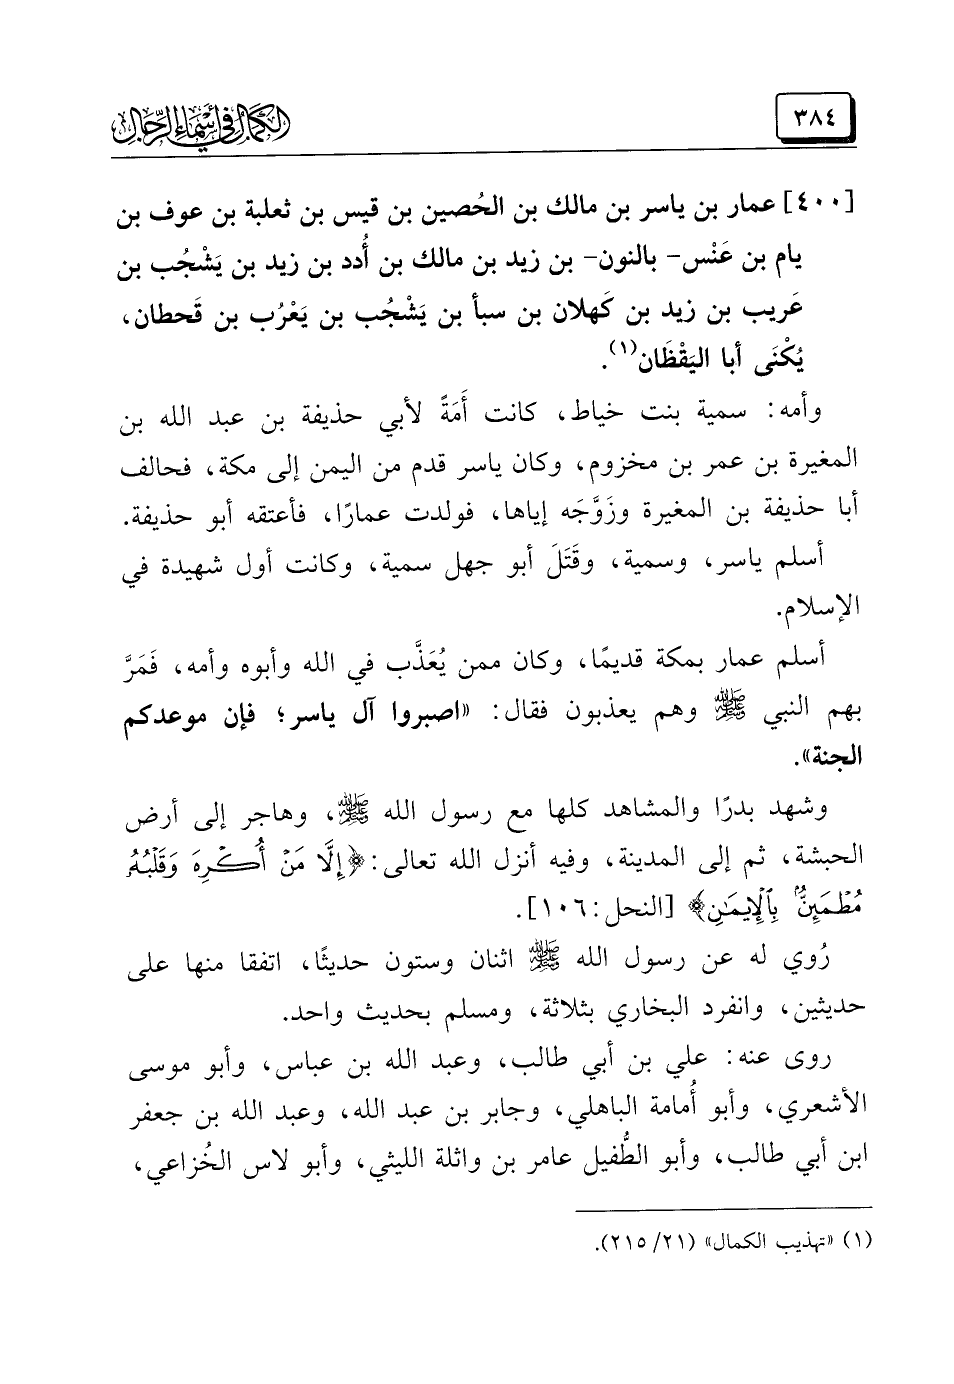 ٣٨٤
الكمال في أسماء الرجال
[٤٠٠] عمار بن ياسر بن مالك بن الحُصين بن قيس بن ثعلبة بن عوف بن
يام بن عَنْس- بالنون- بن زيد بن مالك بن أُدد بن زيد بن يَشْجُب بن
عَريب بن زيد بن كَهلان بن سبأ بن يَشْجُب بن يَعْرُب بن قَحطان،
يُكْنَى أبا اليَقْظَان(١).
وأمه: سمية بنت خياط، كانت أَمَةً لأبي حذيفة بن عبد الله بن
المغيرة بن عمر بن مخزوم، وكان ياسر قدم من اليمن إلى مكة، فحالف
أبا حذيفة بن المغيرة وزَوَّجَه إياها، فولدت عمارًا، فأعتقه أبو حذيفة.
أسلم ياسر، وسمية، وقَتَلَ أبو جهل سمية، وكانت أول شهيدة في
الإسلام.
أسلم عمار بمكة قديمًا، وكان ممن يُعَذَّب في الله وأبوه وأمه، فَمَرَّ
بهم النبي ﷺ وهم يعذبون فقال: «اصبروا آل ياسر؛ فإن موعدكم
الجنة».
وشهد بدرًا والمشاهد كلها مع رسول الله ﷺ، وهاجر إلى أرض
الحبشة، ثم إلى المدينة، وفيه أنزل الله تعالى: ﴿إِلَّا مَنْ أُكْرِهَ وَقَلْبُهُۥ
مُطْمَئِنٌّۢ بِٱلْإِيمَٰنِ﴾ [النحل: ١٠٦].
رُوي له عن رسول الله ﷺ اثنان وستون حديثًا، اتفقا منها على
حديثين، وانفرد البخاري بثلاثة، ومسلم بحديث واحد.
روى عنه: علي بن أبي طالب، وعبد الله بن عباس، وأبو موسى
الأشعري، وأبو أُمامة الباهلي، وجابر بن عبد الله، وعبد الله بن جعفر
ابن أبي طالب، وأبو الطُّفيل عامر بن واثلة الليثي، وأبو لاس الخُزاعي،
(١) «تهذيب الكمال» (٢١/ ٢١٥).